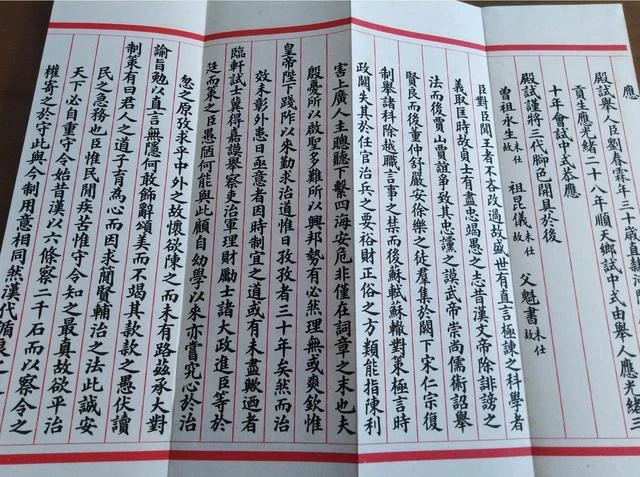 應
殿試舉人臣劉春霖年三十歲直隸河
貢生應光緒二十八年順天鄉試中式由舉人應光緒三
十年會試中式恭應
殿試謹將三代腳色開具於後
曾祖永生未仕故 祖昆儀未仕故 父魁書未仕故
臣對臣聞王者不吝改過故盛世有直言極諫之科學者
義取匡時故貞士有盡忠竭愚之志昔漢文帝除誹謗之
法而後賈山賈誼爭致其忠讜之謨武帝崇尚儒術詔舉
賢良而後董仲舒嚴安徐樂之徒羣集於闕下宋仁宗復
制舉諸科除越職言事之禁而後蘇軾蘇轍對策極言時
政闕失其於任官治兵之要裕財正俗之方類能指陳利
害上廣人主聰聽下繫四海安危非僅在詞章之末也夫
殷憂所以啟聖多難所以興邦勢有必然理無或爽欽惟
皇帝陛下踐阼以來勤求治道惟日孜孜者三十年矣然而治
效未彰外患日亟意者因時制宜之道或有未盡歟迺者
臨軒試士冀得嘉謨舉察吏治軍理財勵士諸大政進臣等於
廷而策之臣愚陋何能與此顧自幼學以來亦嘗究心於治
忽之原攷求乎中外之故懷欲陳之而未有路茲承大對
諭旨勉以直言無隱何敢飾辭頌美而不竭其款款之愚伏讀
制策有曰君人之道子育為心而因求簡賢輔治之法此誠安
民之急務也臣惟民間疾苦惟守令知之最真故欲平治
天下必自重守令始昔漢以六條察二千石而以察令之
權寄之於守此與今制用意相同然漢代循良